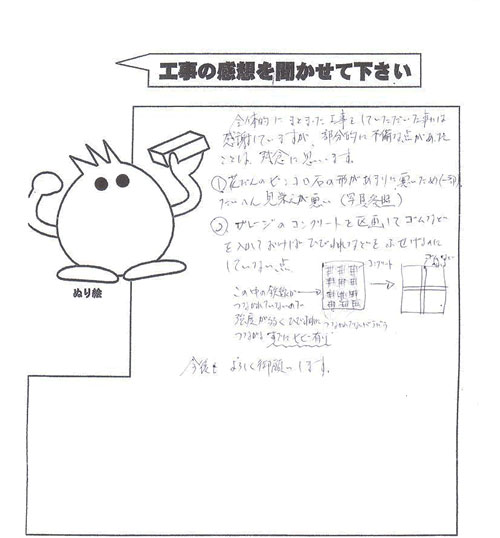 工事の感想を聞かせて下さい
全体的にまとまった工事をしていただいた事には
感謝していますが、部分的に不備な点があった
ことは、残念に思います。
①花だんのピンコロ石の形があまりに悪いため(一部)
たいへん見栄えが悪い(写真参照)
②ガレージのコンクリートを区画してゴムなど
を入れておけばひび割れなどをふせげるのに
していない点
コンクリート
この中の鉄線が
つながれていないので
強度が弱くひび割れに
つながる すでにヒビ有り
今後もよろしく御願いします。
ぬり絵